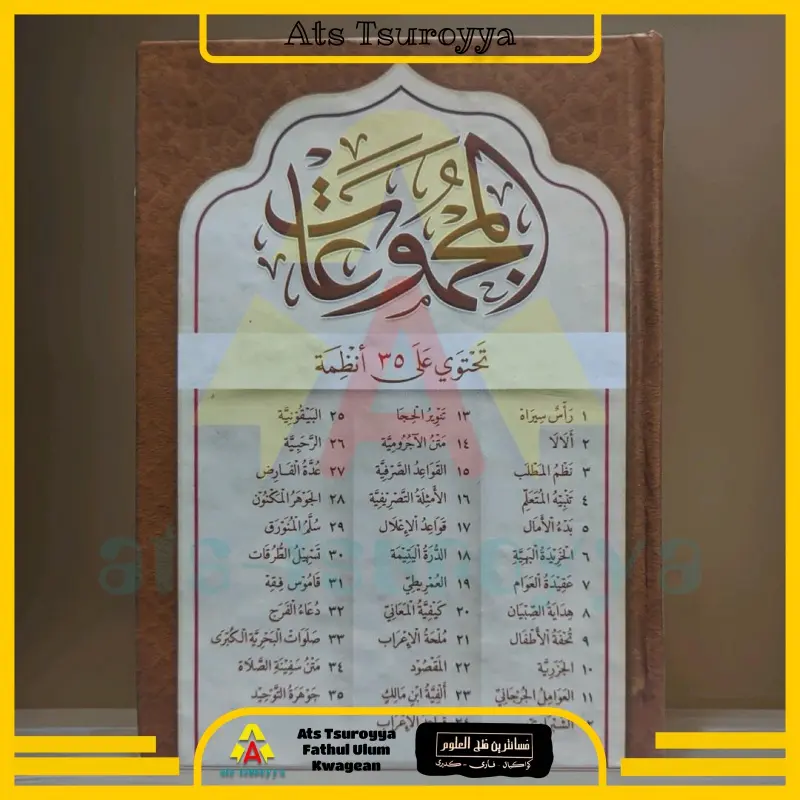 Ats Tsuroyya
المجموعات
تَحْتَوِي عَلَى ٣٥ أَنْظِمَة
١ رَأْس سِيرَاة
٢ أَلَالَا
٣ نَظْمُ المَطْلَب
٤ تَنْبِيْهُ المُتَعَلِّم
٥ بَدْءُ الأَمَال
٦ الخَرِيْدَةُ البَهِيَّة
٧ عَقِيْدَةُ العَوَام
٨ هِدَايَةُ الصِّبْيَان
٩ تُحْفَةُ الأَطْفَال
١٠ الجَزَرِيَّة
١١ العَوَامِلُ الجُرْجَانِيّ
١٣ تَنْوِيْرُ الحِجَا
١٤ مَتْنُ الآجُرُومِيَّة
١٥ القَوَاعِدُ الصَّرْفِيَّة
١٦ الأَمْثِلَةُ التَّصْرِيْفِيَّة
١٧ قَوَاعِدُ الإِعْلَال
١٨ الدُّرَّةُ اليَتِيْمَة
١٩ العِمْرِيطِيّ
٢٠ كَيْفِيَّةُ المَعَانِيّ
٢١ مُلْحَةُ الإِعْرَاب
٢٢ المَقْصُود
٢٣ أَلْفِيَّةُ ابْنِ مَالِك
٢٥ البَيْقُوْنِيَّة
٢٦ الرَّحَبِيَّة
٢٧ عُدَّةُ الفَارِض
٢٨ الجَوْهَرُ المَكْنُوْن
٢٩ سُلَّمُ المُنَوْرَق
٣٠ تَسْهِيْلُ الطُّرُقَات
٣١ قَامُوْس فِقِهْ
٣٢ دُعَاءُ الفَرَج
٣٣ صَلَوَات البَحْرِيَّة الكُبْرَى
٣٤ مَتْنُ سَفِيْنَةِ الصَّلَاة
٣٥ جَوْهَرَةُ التَّوْحِيْد
ats-tsuroyya
Ats Tsuroyya
Fathul Ulum
Kwagean
ats tsuroyya
فسانترين فتح العلوم
كواكيان - فاري - كديري